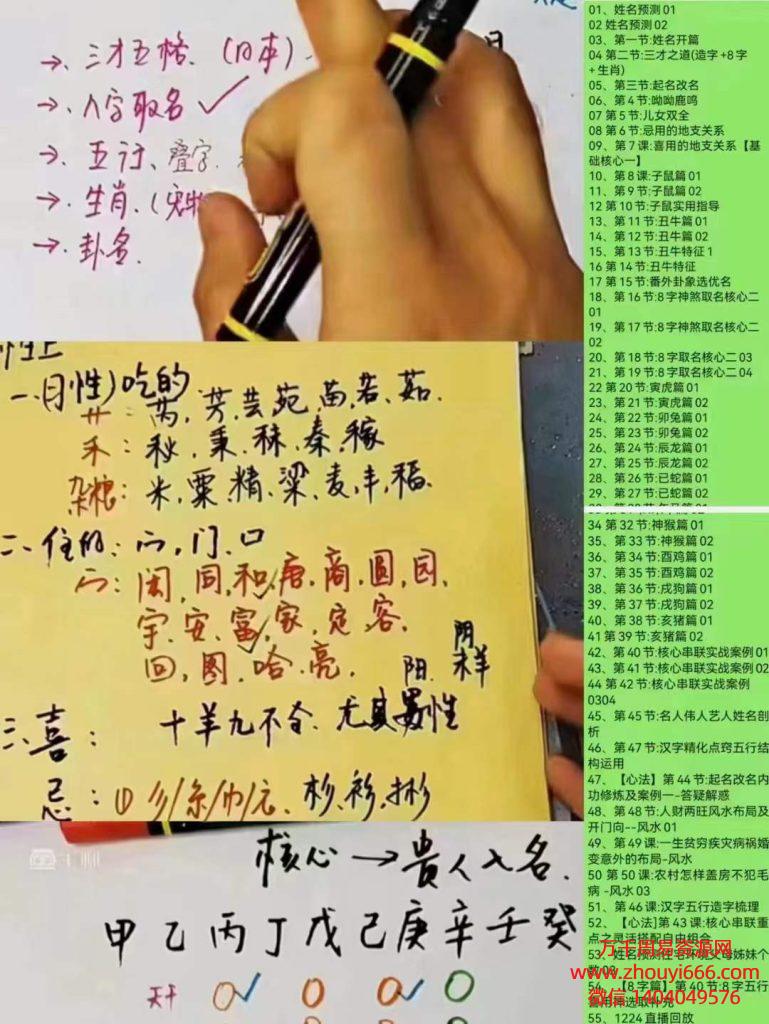 →. 三才五格. (日本).
→. 八字取名 ✓
→. 五行、叠字.
→. 生肖. (宠物
→. 卦名.
一、习性)吃的
艹: 芮, 芳, 芸, 苑, 苗, 若, 茹.
禾: 秋, 秉, 秣, 秦, 稼
杂粮: 米, 粟, 精, 梁, 麦, 丰, 福.
二、住的: 冖, 门, 口
冖: 闲, 同, 和, 唐, 商, 圆, 园,
宇, 安, 富, 家, 定, 客.
回, 图, 哈, 亮.
阳. 未羊
阴
三、喜: 十羊九不全. 尤其
忌: ① 彡/糸/巾/
杉、衫、彬
核心 → 贵人入名.
甲乙丙丁戊己庚辛壬癸
天干
01、姓名预测 01
02 姓名预测 02
03、第一节:姓名开篇
04 第二节:三才之道(造字 +8 字
+ 生肖)
05、第三节:起名改名
06、第 4 节:呦呦鹿鸣
07 第 5 节:儿女双全
08 第 6 节:忌用的地支关系
09、第 7 课:喜用的地支关系【基
础核心一】
10、第 8 课:子鼠篇 01
11、第 9 节:子鼠篇 02
12 第 10 节:子鼠实用指导
13、第 11 节:丑牛篇 01
14、第 12 节:丑牛篇 02
15、第 13 节:丑牛特征 1
16 第 14 节:丑牛特征
17 第 15 节:番外卦象选优名
18、第 16 节:8 字神煞取名核心二
01
19、第 17 节:8 字神煞取名核心二
02
20、第 18 节:8 字取名核心二 03
21、第 19 节:8 字取名核心二 04
22 第 20 节:寅虎篇 01
23、第 21 节:寅虎篇 02
24、第 22 节:卯兔篇 01
25、第 23 节:卯兔篇 02
26、第 24 节:辰龙篇 01
27、第 25 节:辰龙篇 02
28、第 26 节:已蛇篇 01
29、第 27 节:已蛇篇 02
34 第 32 节:神猴篇 01
35、第 33 节:神猴篇 02
36、第 34 节:酉鸡篇 01
37、第 35 节:酉鸡篇 02
38、第 36 节:戌狗篇 01
39、第 37 节:戌狗篇 02
40、第 38 节:亥猪篇 01
41 第 39 节:亥猪篇 02
42、第 40 节:核心串联实战案例 01
43、第 41 节:核心串联实战案例 02
44 第 42 节:核心串联实战案例
0304
45、第 45 节:名人伟人艺人姓名剖
析
46、第 47 节:汉字精化点窍五行结
构运用
47、【心法】第 44 节:起名改名内
功修炼及案例一-答疑解惑
48、第 48 节:人财两旺风水布局及
开门向--风水 01
49、第 49 课:一生贫穷疾灾病祸婚
变意外的布局-风水
50 第 50 课:农村怎样盖房不犯毛
病 -风水 03
51、第 46 课:汉字五行造字梳理
52、【心法]第 43 课:核心串联重
点之灵活搭配自由组合
53、姓名预测住宅环境父母姊妹个
数 03
54、【8 字篇】第 40 节:8 字五行
喜用神选取补充
55、1224 直播回放
万千周易资源网
www.zhouyi666.com
微信 1404049576